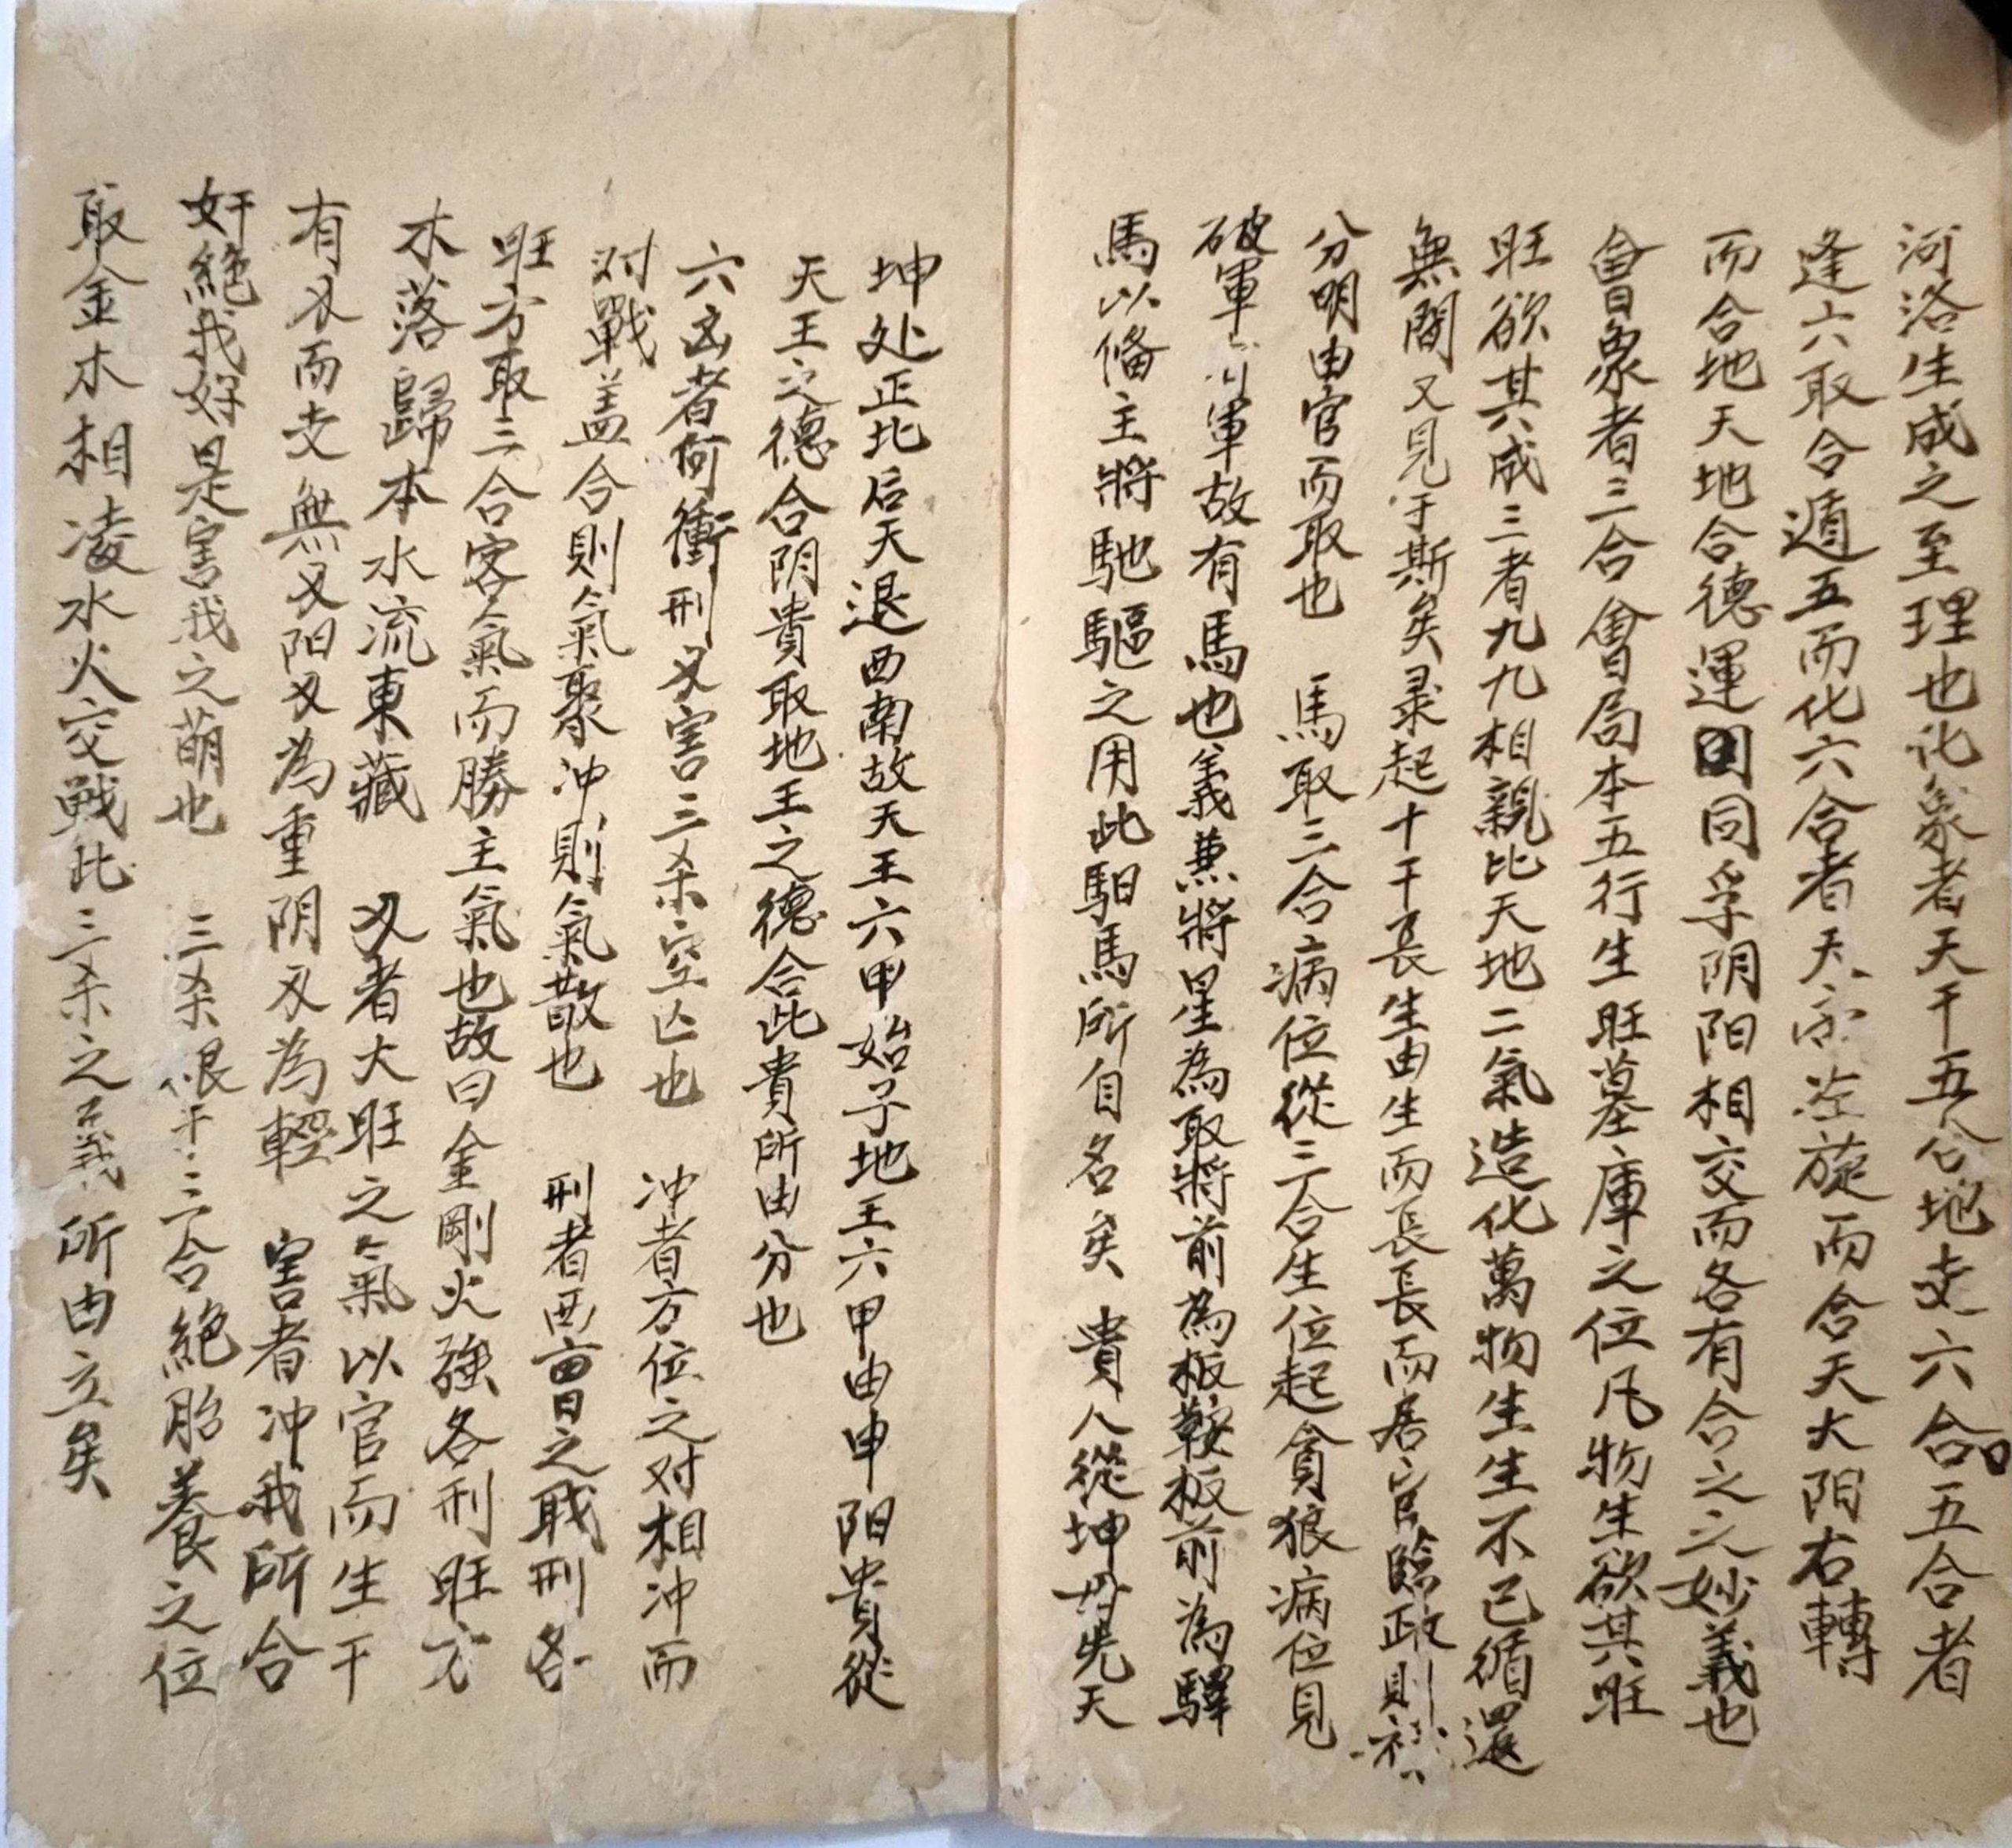 河洛生成之至理也化象者天干五合地支六合五合者
逢六取合遁五而化六合者天而左旋而合天大阳右轉
而合地天地合德運同孚阴阳相交而各有合之之妙義也
會象者三合會局本五行生旺墓庫之位凡物生欲其旺
旺欲其成三者九九相親比天地二氣造化萬物生生不已循還
無間又見于斯矣录起十干長生由生而長長而居官臨政則祿
分明由官而取也 馬取三合病位從三合生位起貪狼病位見
破軍軍故有馬也義兼將星為取將前為板鞍板前為驛
馬以偹主將馳驅之用此馹馬所自名矣 貴人從坤坤先天
坤处正北后天退西南故天王六甲始子地王六甲由申阳貴從
天王之德合阴貴取地王之德合此貴所由分也
六凶者何衝刑刄害三杀空亡也 冲者方位之对相冲而
对戰盖合則氣聚冲則氣散也 刑者西畨曰之戰刑各
旺方取三合客氣而勝主氣也故曰金剛火強各刑旺方
木落歸本水流東藏 刄者大旺之氣以官而生干
有刄而支無刄阳刄為重阴刄為輕 害者冲我所合
奸絕我好是害我之萌也 三杀根于三合絕胎養之位
取金木相凌水火交戰此三杀之義所由立矣